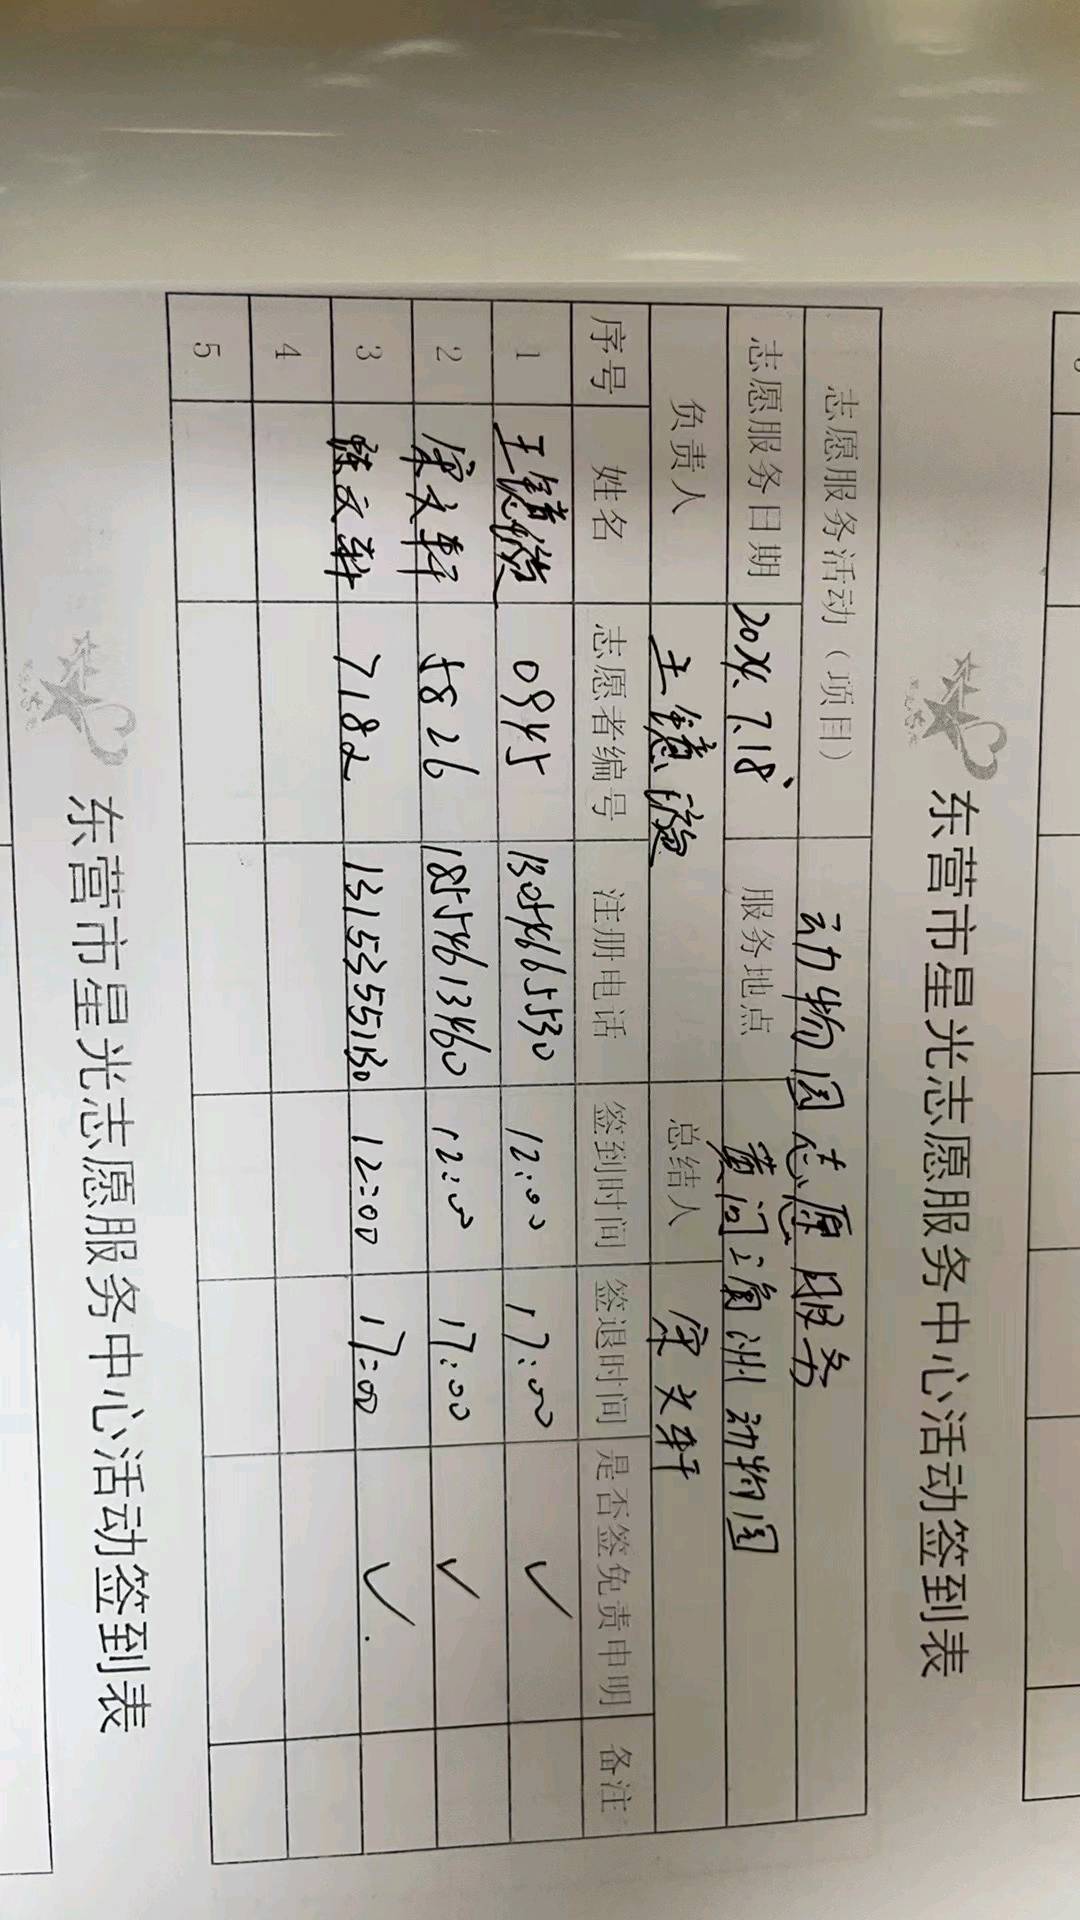 东营市星光志愿服务中心活动签到表
志愿服务活动（项目） 动物园志愿服务
志愿服务日期 2024.7.18 服务地点 黄河三角洲动物园
负责人 王 总结人 宋文轩
序号 姓名 志愿者编号 注册电话 签到时间 签退时间 是否签免责申明 备注
1 王 0945 13054665530 12:00 17:00 ✓
2 宋文轩 5826 18554613460 12:00 17:00 ✓
3 陈文新 7182 13153555130 12:00 17:00 ✓
4
5
东营市星光志愿服务中心活动签到表